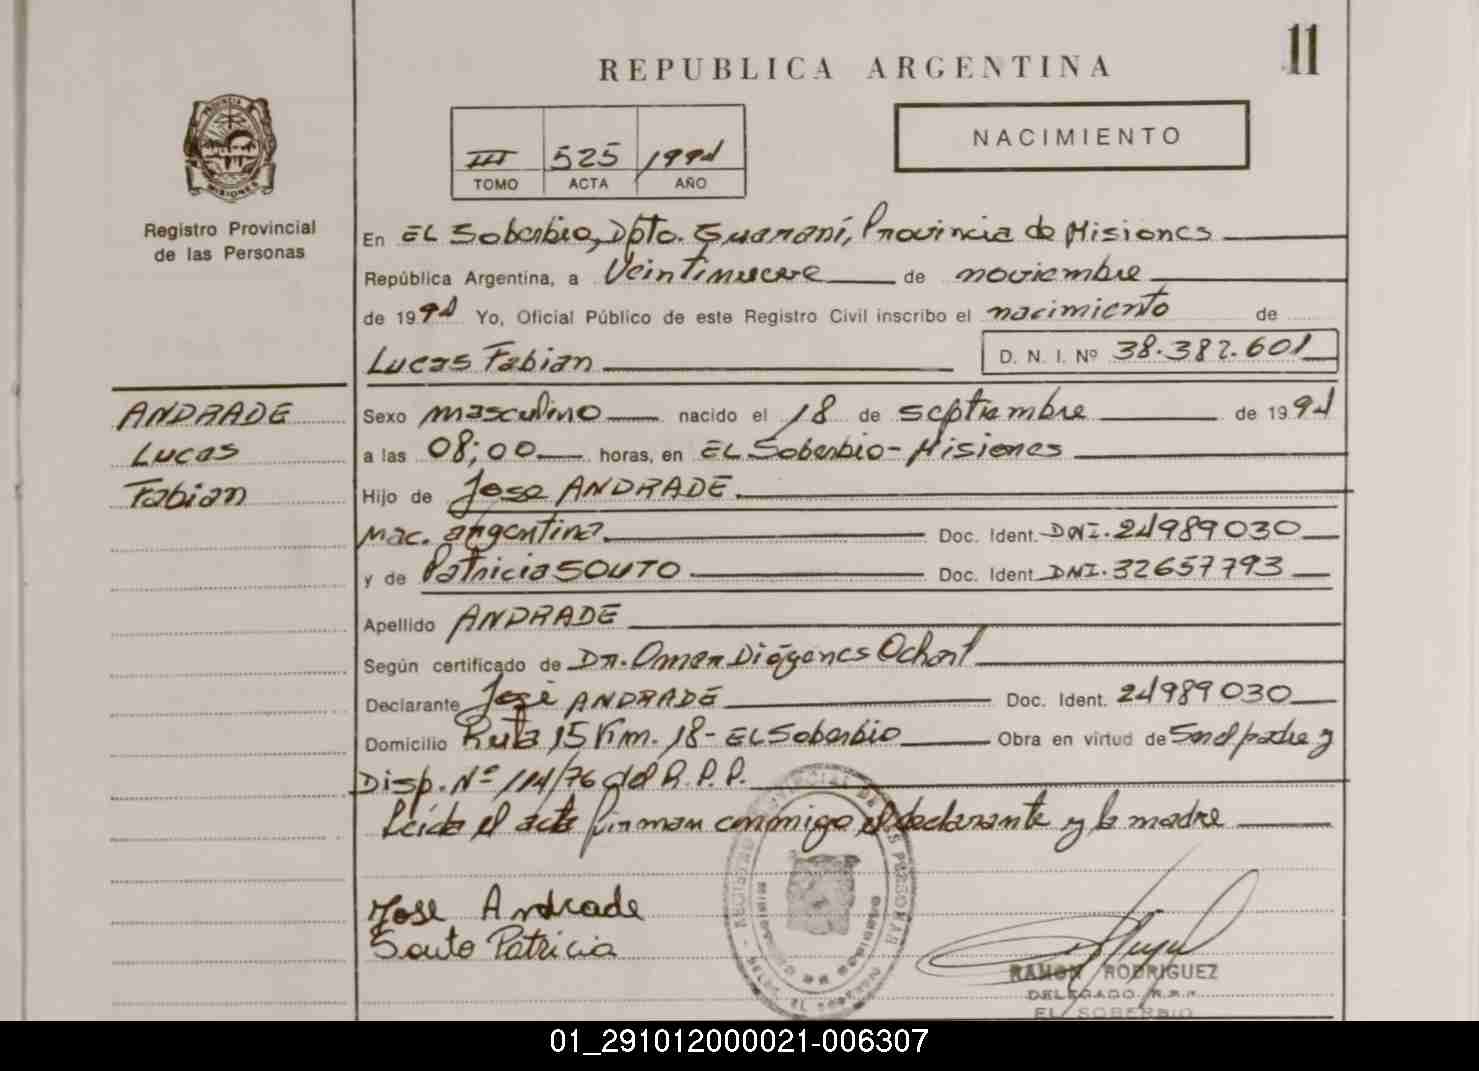 11
REPUBLICA ARGENTINA
NACIMIENTO
III 525 1994
TOMO ACTA AÑO
PROVINCIA DE
MISIONES
Registro Provincial
de las Personas
En EL Soberbio, Dpto. Guaraní, Provincia de Misiones
República Argentina, a Veintinueve de noviembre
de 1994 Yo, Oficial Público de este Registro Civil inscribo el nacimiento de
Lucas Fabian D. N. I. Nº 38.382.601
ANDRADE
Lucas
Fabian
Sexo masculino nacido el 18 de septiembre de 1994
a las 08:00 horas, en EL Soberbio - Misiones
Hijo de Jose ANDRADE
nac. argentina Doc. Ident. DNI. 24989030
y de Patricia SOUTO Doc. Ident. DNI. 32657793
Apellido ANDRADE
Según certificado de Dr. Omar Diógenes
Declarante José ANDRADE Doc. Ident. 24989030
Domicilio Ruta 15 Km. 18 - EL Soberbio Obra en virtud de padre y
Disp. Nº 114/76 del R.P.P.
Leida el acta firman conmigo el declarante y la madre
Jose Andrade
Souto Patricia
RAMON RODRIGUEZ
DELEGADO R.P.P.
EL SOBERBIO
01_291012000021-006307